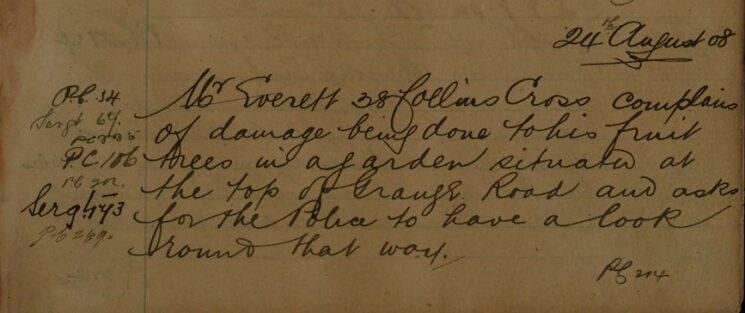 24th August 08
Mr Everett 38 Collins Cross complains
of damage being done to his fruit
trees in a garden situated at
the top of Grange Road and asks
for the Police to have a look
round that way.
P.C. 34
Sergt 64.
PC 106
PC 202.
Sergt 73
PC 269.
PC 204